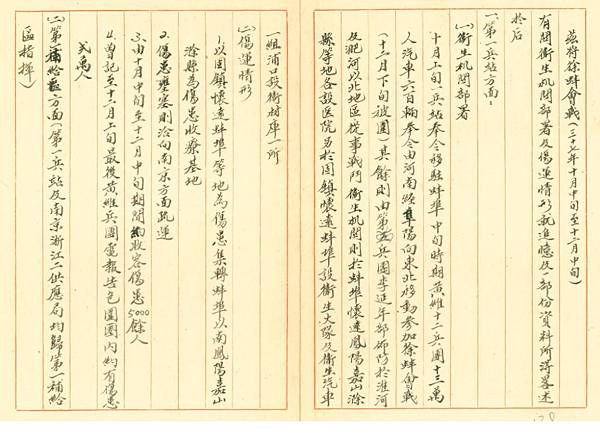 茲將徐蚌會戰(三十七年十月中旬至十二月中旬)
有關衛生机関部署及傷運情形就追憶及一部份資料所得畧述
於后
一第一兵站方面:
(一)衛生机関部署
十月上旬一兵站奉令移駐蚌埠中旬時期黃維十二兵團十三萬
人汽車六百輛奉令由河南經阜陽向東北移動參加徐蚌會戰
(十二月下旬被圍)其餘則由第六兵團李延年部佈防於淮河
及淝河以北地區從事戰鬥衛生机関則於蚌埠懷遠鳳陽嘉山滁
縣等地各設医院另於固鎮懷遠蚌埠設衛生大隊及衛生汽車
一組浦口設衛材庫一所
(二)傷運情形
1.以固鎮懷遠蚌埠等地為傷患集轉蚌埠以南鳳陽嘉山
滁縣為傷患收療基地
2.傷患壅塞則洽向南京方面疏運
3.由十月中旬至十二月中旬期間約收容傷患5000餘人
4.曾記至十二月上旬最後黃維兵團電報告包圍圈內約有傷患
弍萬人
(二)第一補給區方面(第一兵站及南京浙江二供應局均歸第一補給
區指揮)